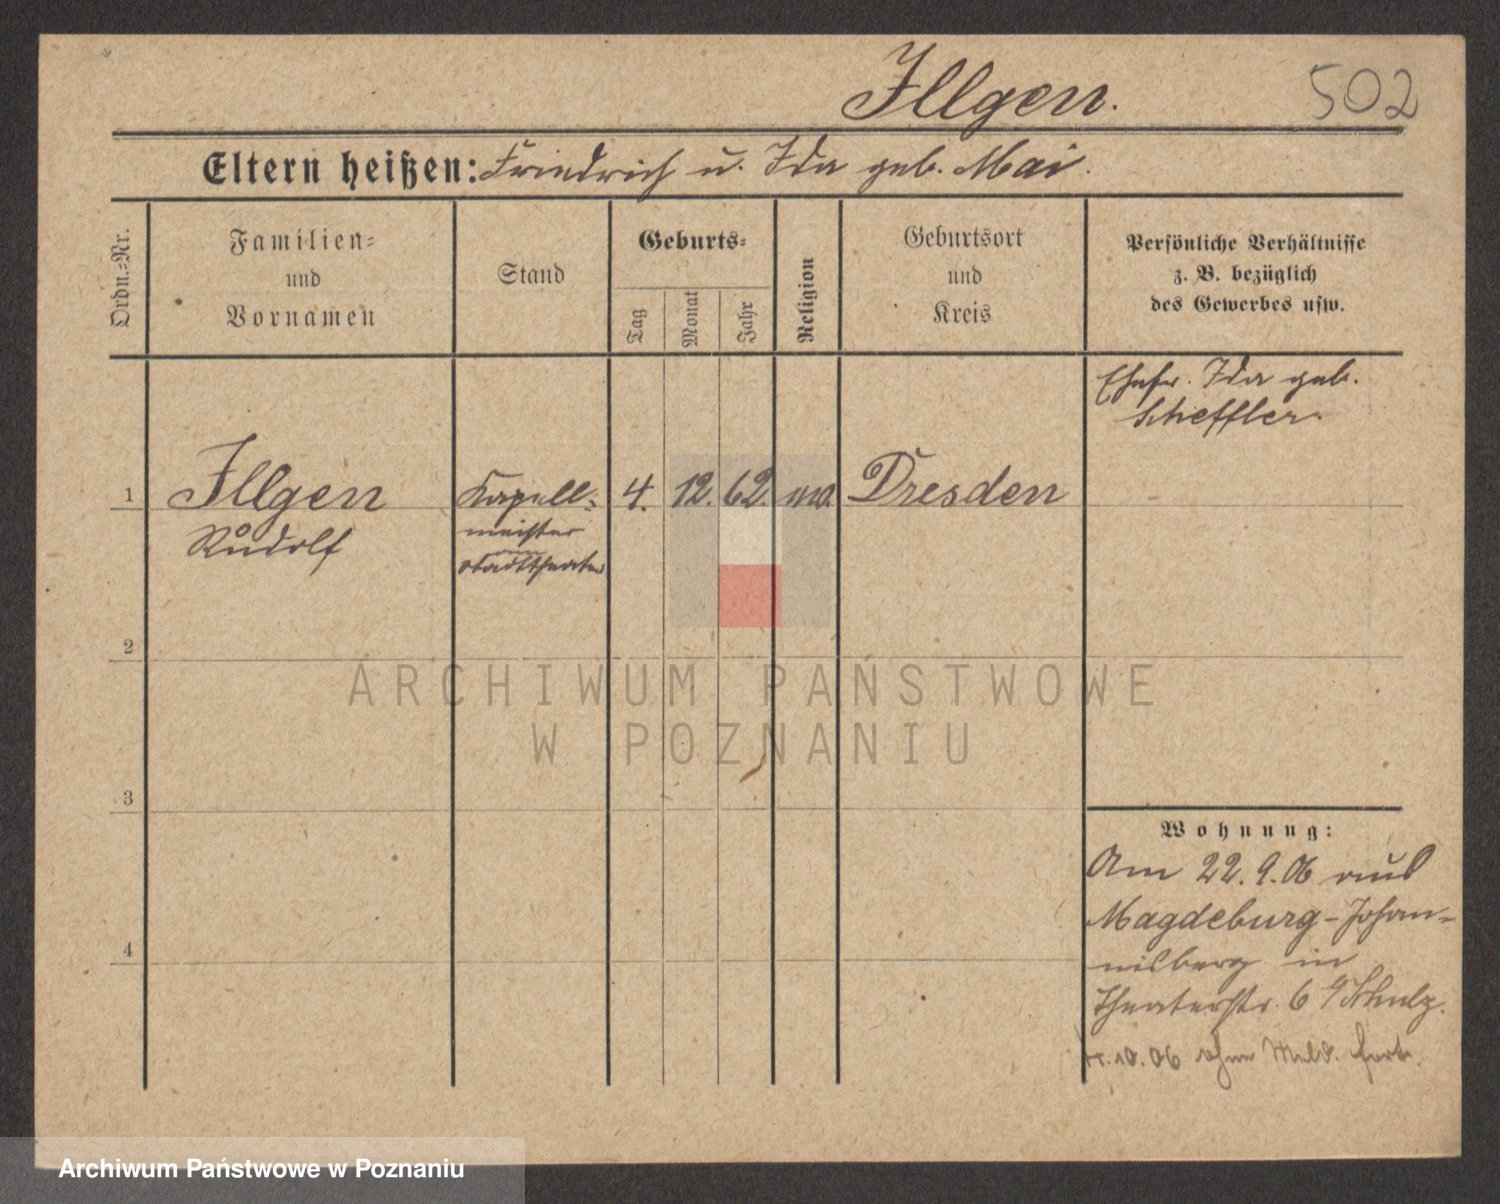 Illgen.
502
Eltern heißen: Friedrich u. Ida geb. Mai.
Ordn.-Nr.
Familien-
und
Vornamen
Stand
Geburts-
Tag
Monat
Jahr
Religion
Geburtsort
und
Kreis
Persönliche Verhältnisse
z. B. bezüglich
des Gewerbes usw.
Ehefr. Ida geb.
Scheffler.
1
Illgen
Rudolf
Kapell-
meister
Stadttheater
4.
12.
62.
Dresden
2
ARCHIWUM PAŃSTWOWE
W POZNANIU
3
Wohnung:
Am 22.9.06 aus
Magdeburg-Johan-
nisberg in
Theaterstr. 6 Schulz.
10.06 ohne Meld. fort.
4
Archiwum Państwowe w Poznaniu